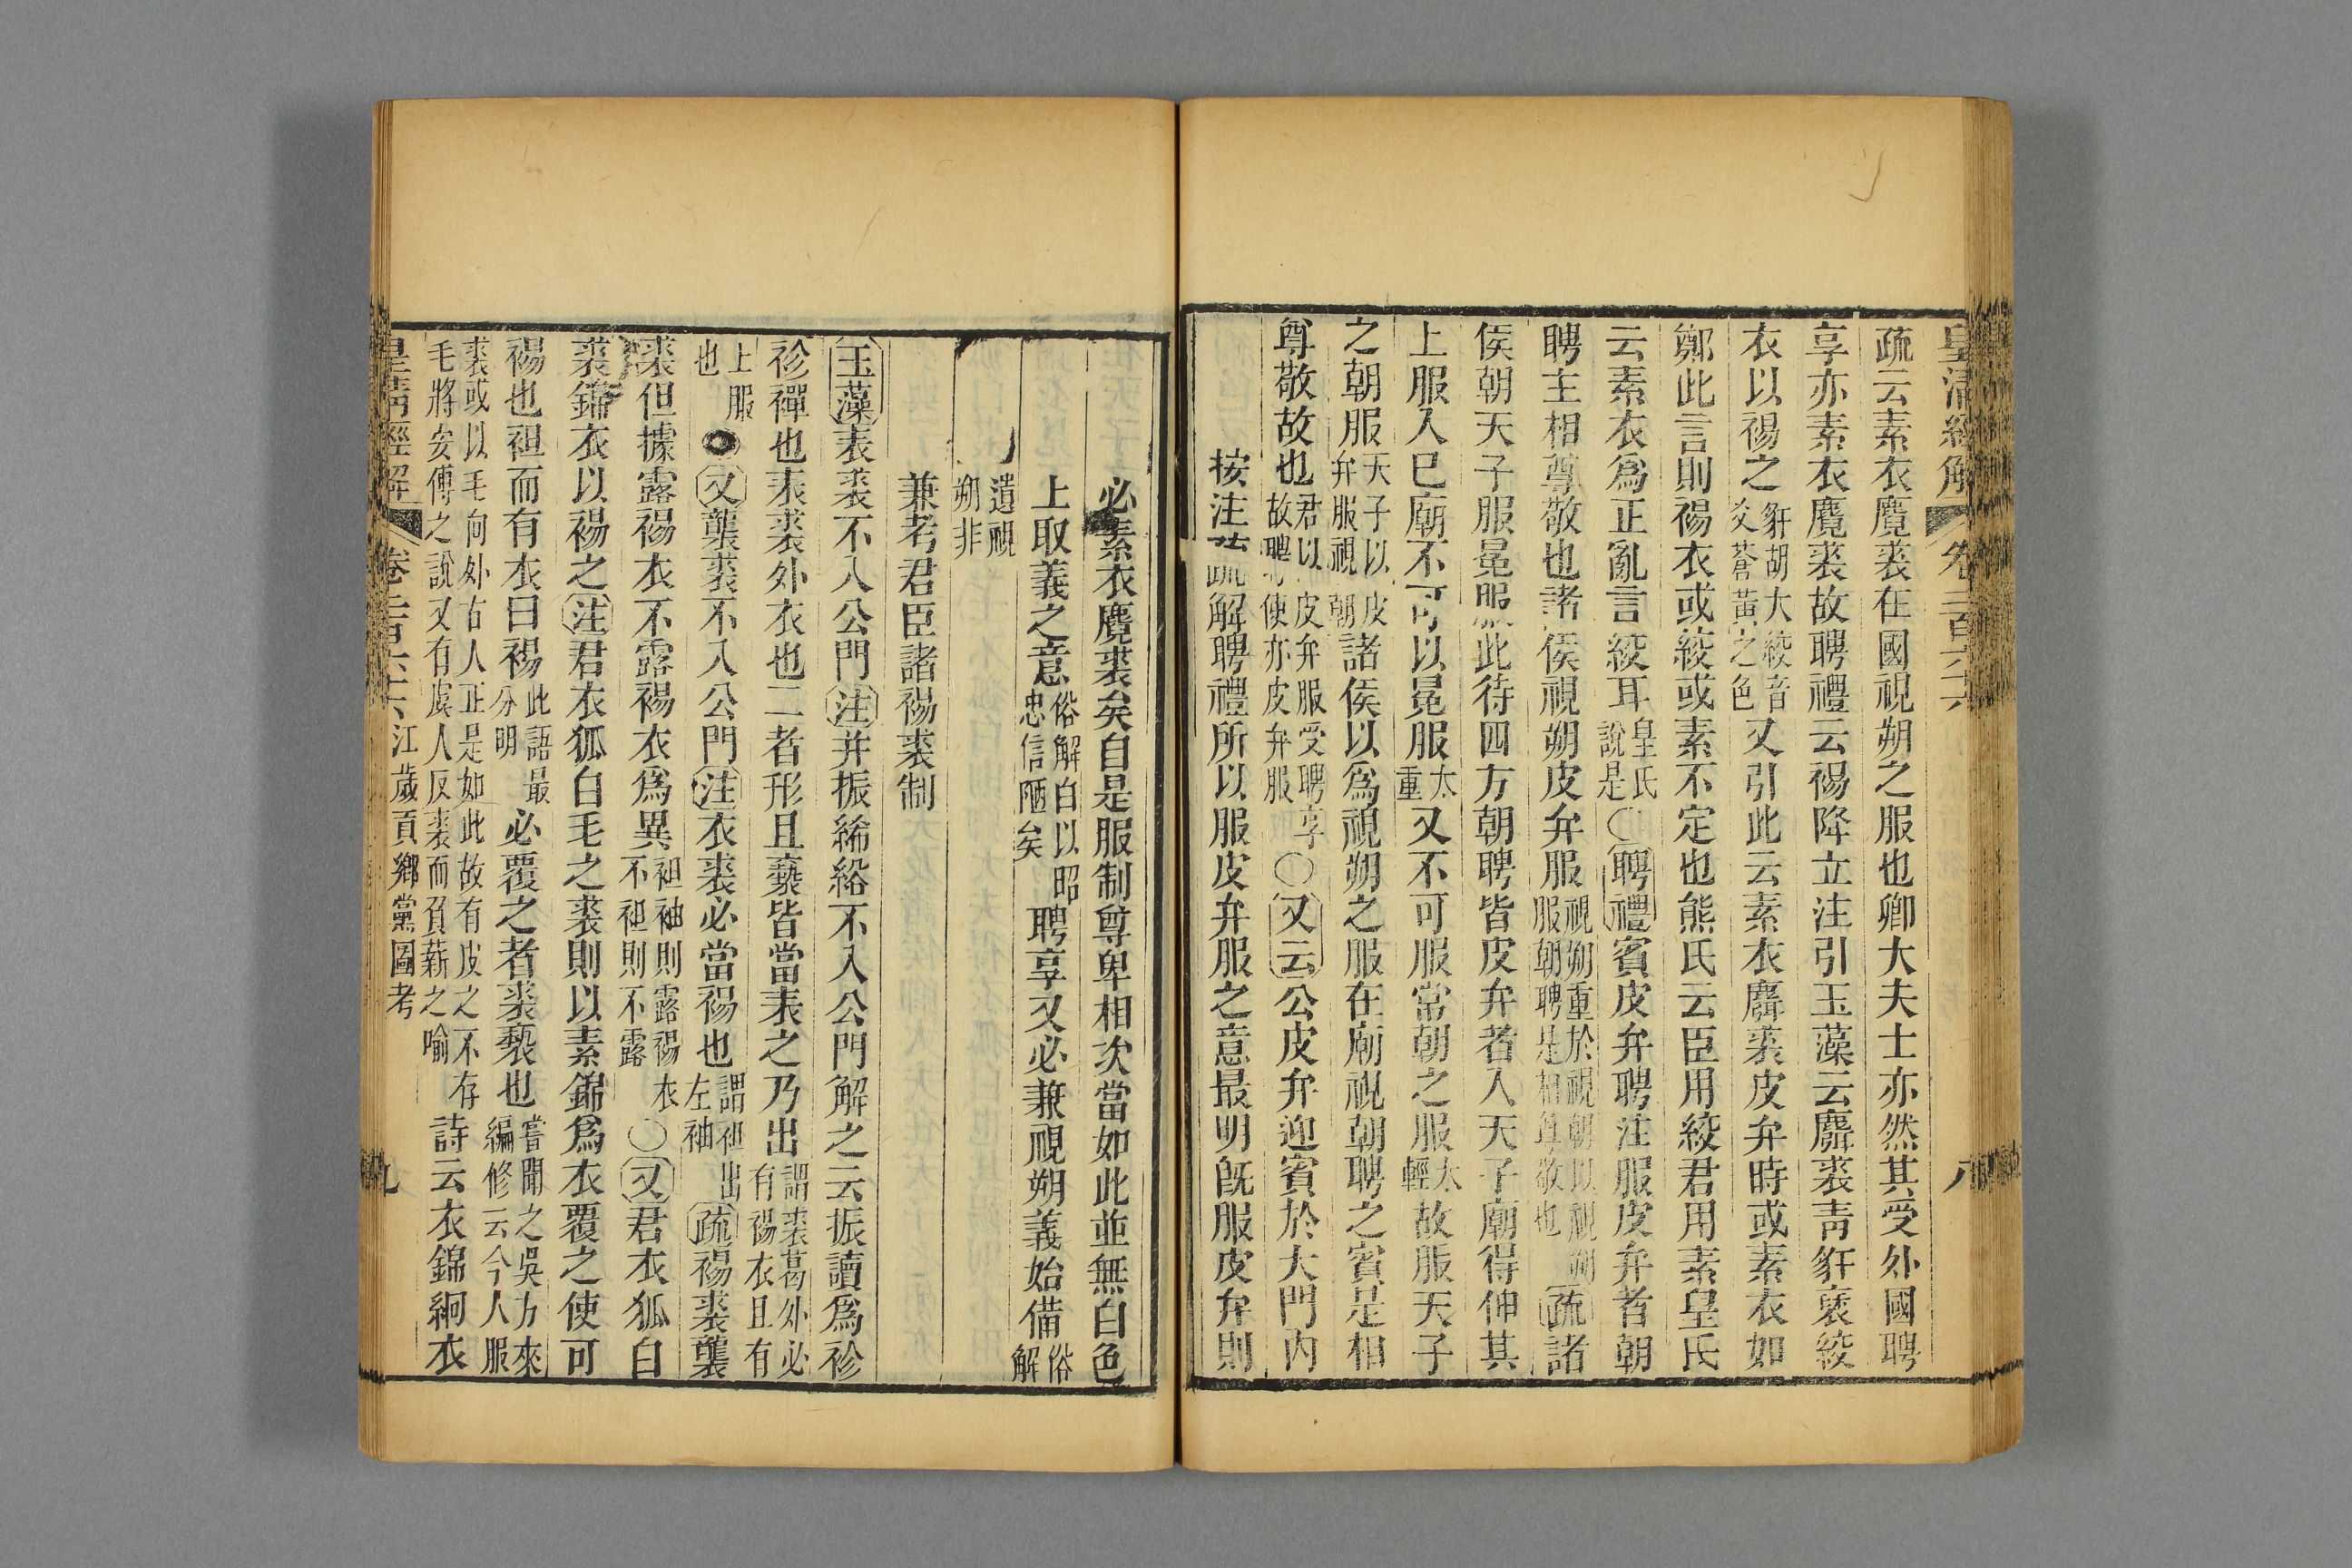 皇清經解 卷二百六十六 八
疏云素衣麑裘在國視朔之服也卿大夫士亦然其受外國聘
享亦素衣麑裘故聘禮云裼降立注引玉藻云麛裘青豻褎絞
衣以裼之豻胡犬絞音爻蒼黃之色又引此云素衣麛裘皮弁時或素衣如
鄭此言則裼衣或絞或素不定也熊氏云臣用絞君用素皇氏
云素衣爲正亂言絞耳皇氏說是〇聘禮賓皮弁聘注服皮弁者朝
聘主相尊敬也諸侯視朔皮弁服視朔重於視朝以視朔服朝聘是相尊敬也疏諸
侯朝天子服冕服此待四方朝聘皆皮弁者入天子廟得伸其
上服入已廟不可以冕服太重又不可服常朝之服太輕故服天子
之朝服天子以皮弁服視朝諸侯以爲視朔之服在廟視朝聘之賓是相
尊敬故也君以皮弁服受聘享故聘使亦皮弁服〇又云公皮弁迎賓於大門內
按注疏解聘禮所以服皮弁服之意最明旣服皮弁則
必素衣麑裘矣自是服制尊卑相次當如此並無白色
上取義之意俗解白以昭忠信陋矣聘享又必兼視朔義始備俗解
遺視朔非
兼考君臣諸裼裘制
玉藻表裘不入公門注并振絺綌不入公門解之云振讀爲袗
袗襌也表裘外衣也二者形且褻皆當表之乃出謂裘葛外必有裼衣且有
上服也〇又襲裘不入公門注衣裘必當裼也謂袒出左袖疏裼裘襲
裘但據露裼衣不露裼衣爲異袒袖則露裼衣不袒則不露〇又君衣狐白
裘錦衣以裼之注君衣狐白毛之裘則以素錦爲衣覆之使可
裼也袒而有衣曰裼此語最分明必覆之者裘褻也嘗聞之吳方來編修云今人服
裘或以毛向外古人正是如此故有皮之不存毛將安傅之說又有虞人反裘而負薪之喻詩云衣錦絅衣
皇清經解 卷二百六十六 江歲貢鄉黨圖考 九